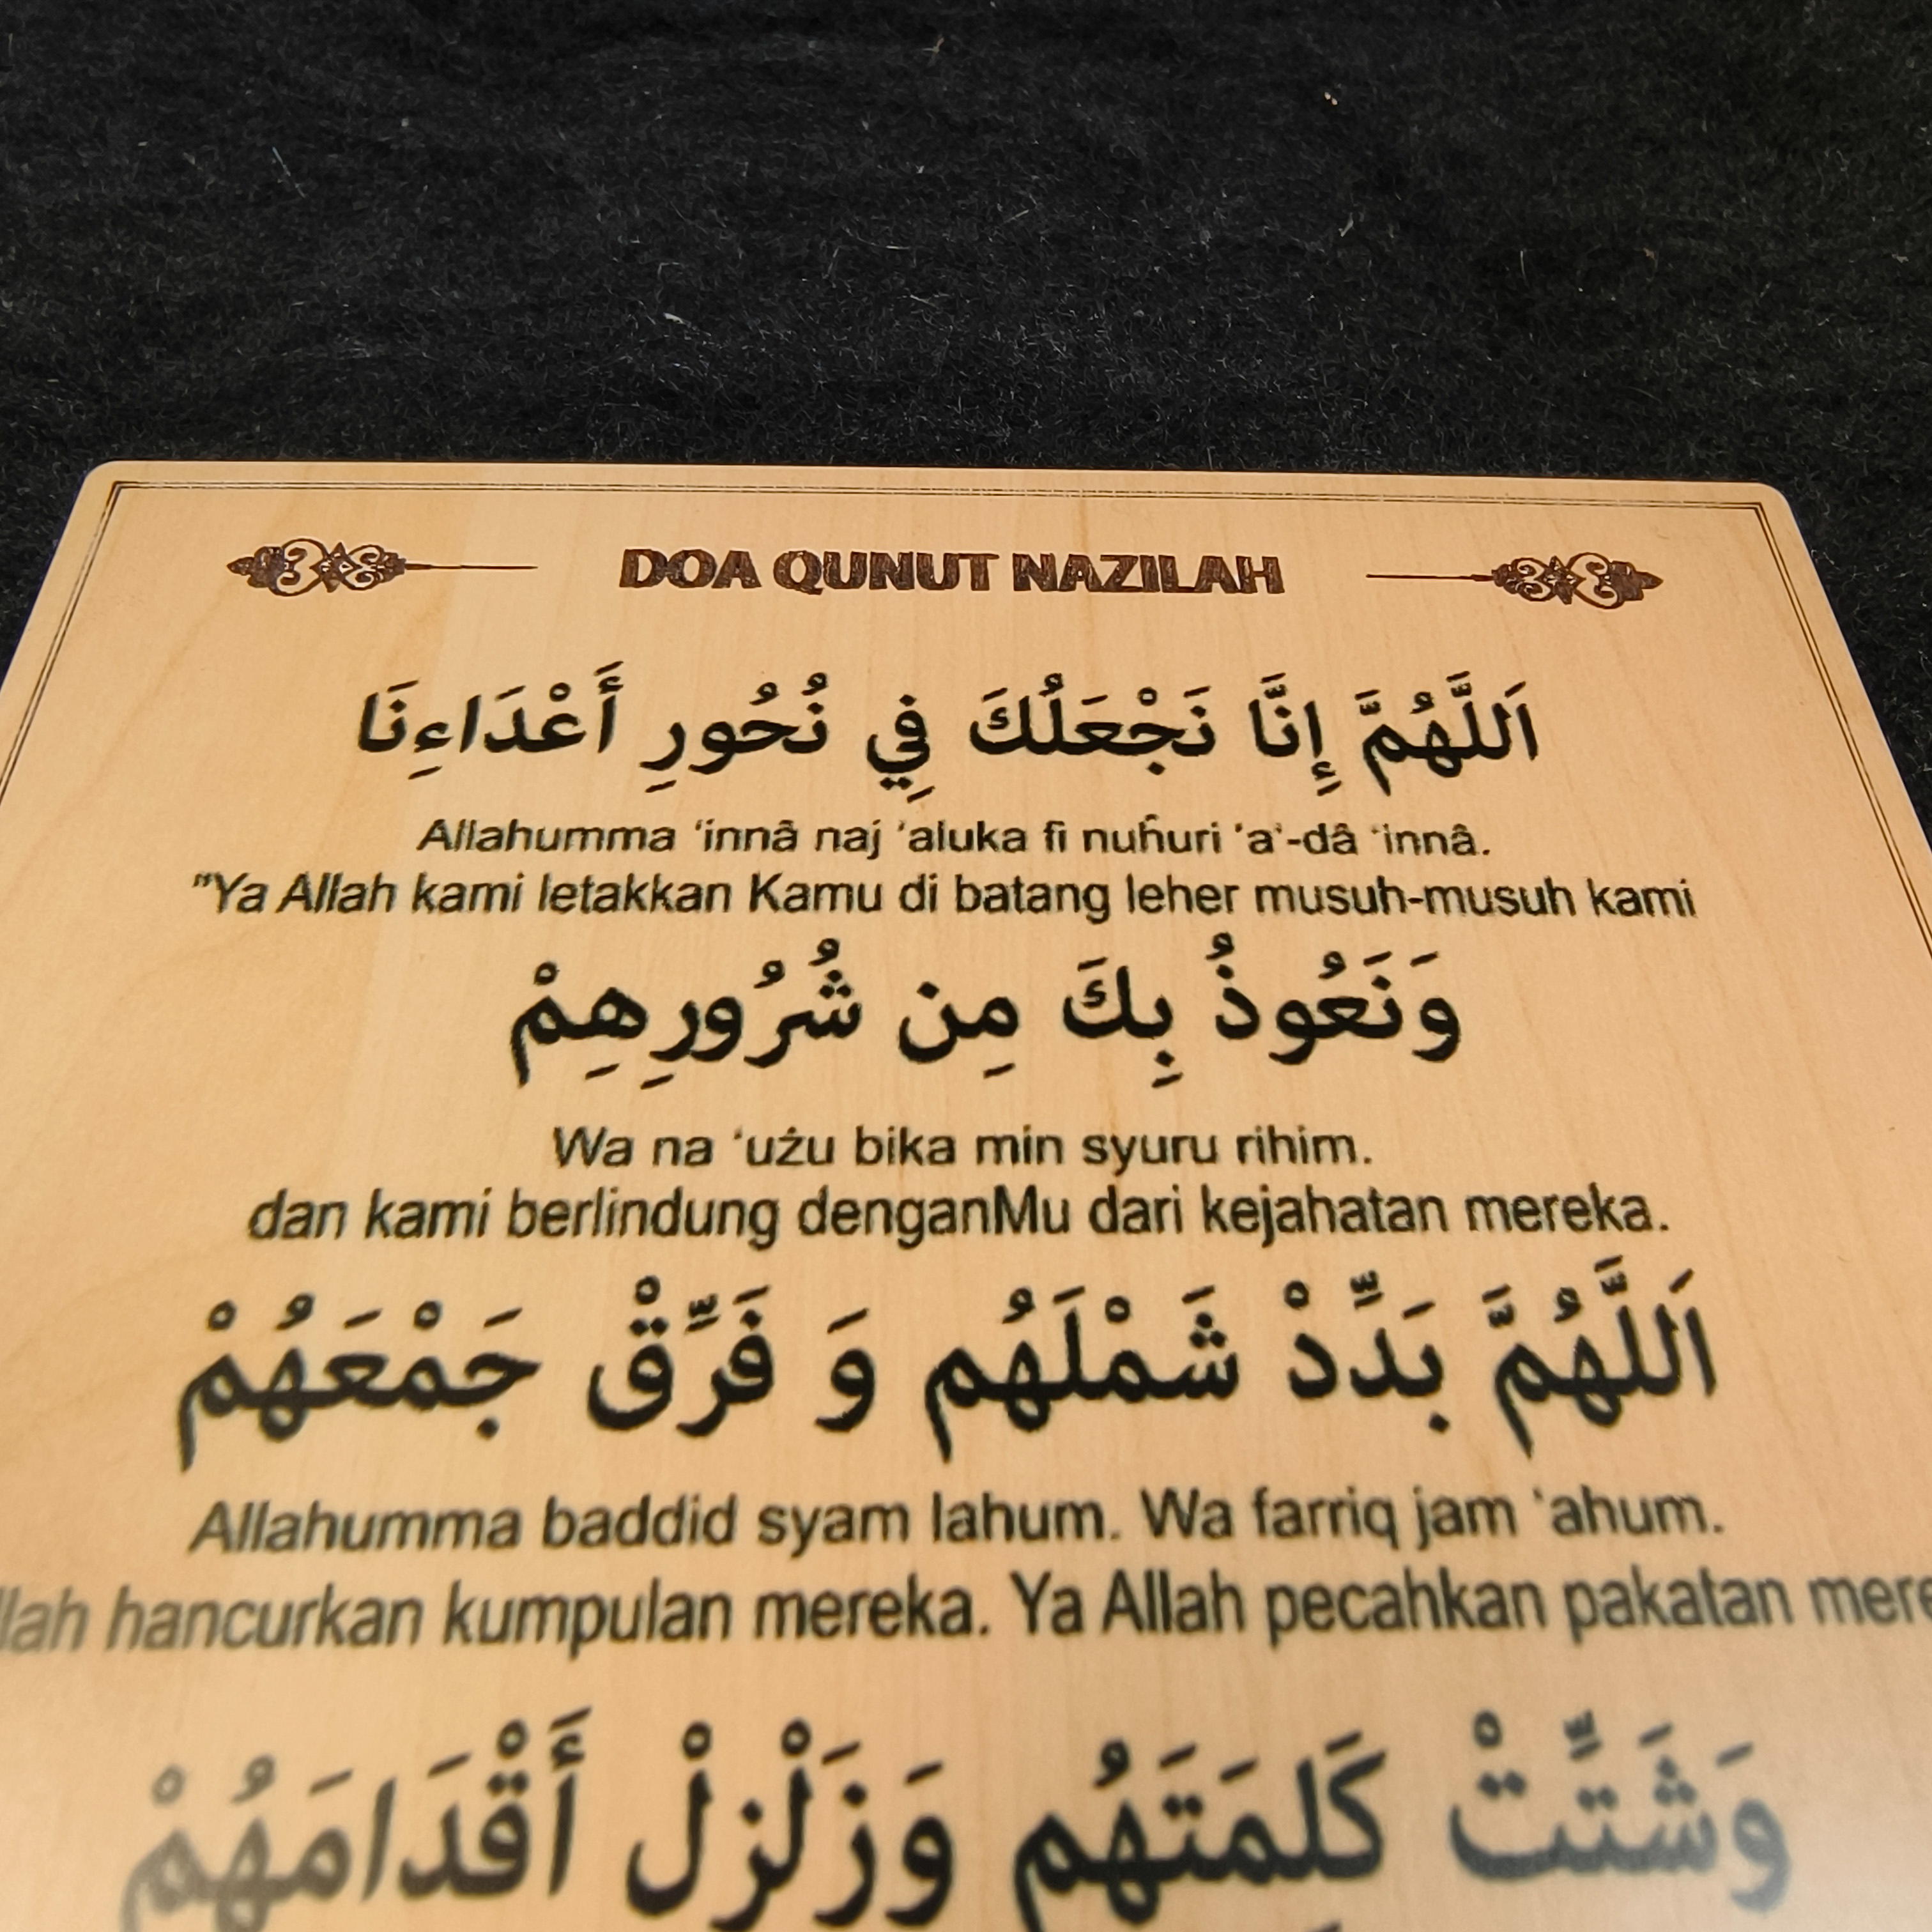 DOA QUNUT NAZILAH
اَللَّهُمَّ إِنَّا نَجْعَلُكَ فِي نُحُورِ أَعْدَاءِنَا
Allahumma 'innâ naj 'aluka fi nuĥuri 'a'-dâ 'innâ.
"Ya Allah kami letakkan Kamu di batang leher musuh-musuh kami
وَنَعُوذُ بِكَ مِن شُرُورِهِمْ
Wa na 'użu bika min syuru rihim.
dan kami berlindung denganMu dari kejahatan mereka.
اَللَّهُمَّ بَدِّدْ شَمْلَهُم وَ فَرِّقْ جَمْعَهُمْ
Allahumma baddid syam lahum. Wa farriq jam 'ahum.
hancurkan kumpulan mereka. Ya Allah pecahkan pakatan
وَشَتِّتْ كَلِمَتَهُم وَزَلْزِلْ أَقْدَامَهُمْ